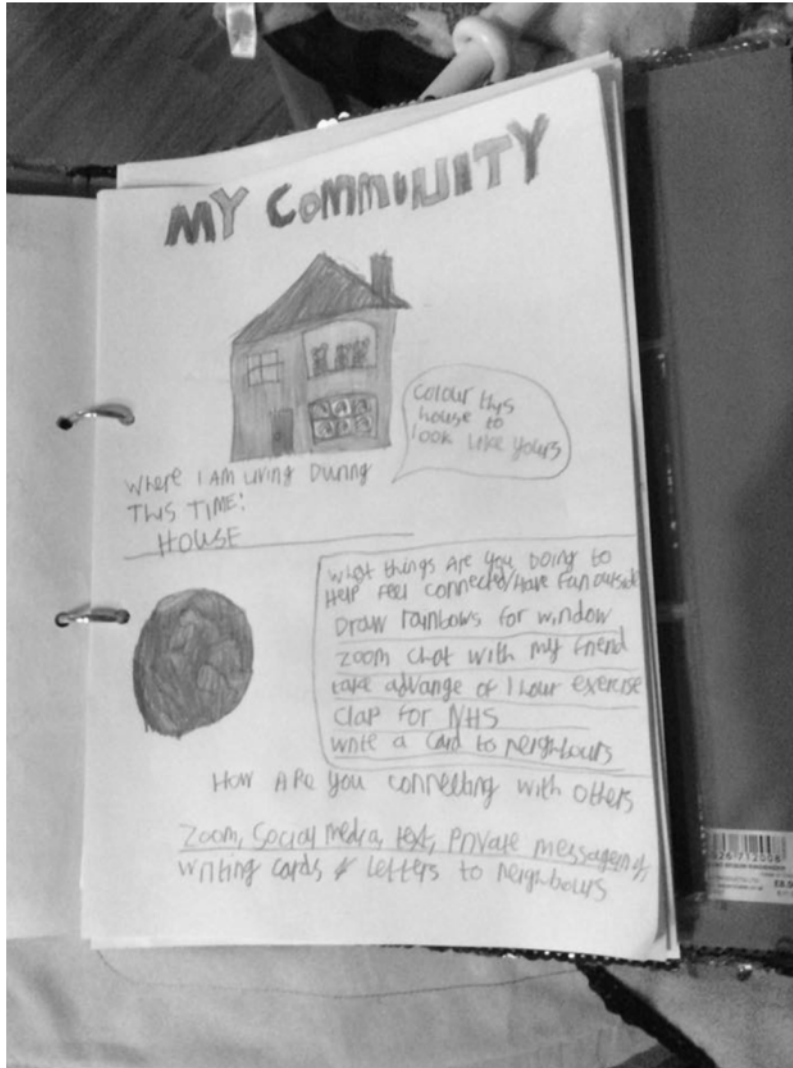 MY COMMUNITY
Colour this
house to
look like yours
Where I AM Living During
THIS TIME!
HOUSE
What things Are you Doing to
Help Feel connected/Have Fun outside
Draw rainbows for window
Zoom chat with my friend
take advange of 1 hour exercise
Clap for NHS
write a card to neighbours
How ARe you connecting with others
Zoom, Social media, text, Private messageing,
Writing cards & Letters to neighbours